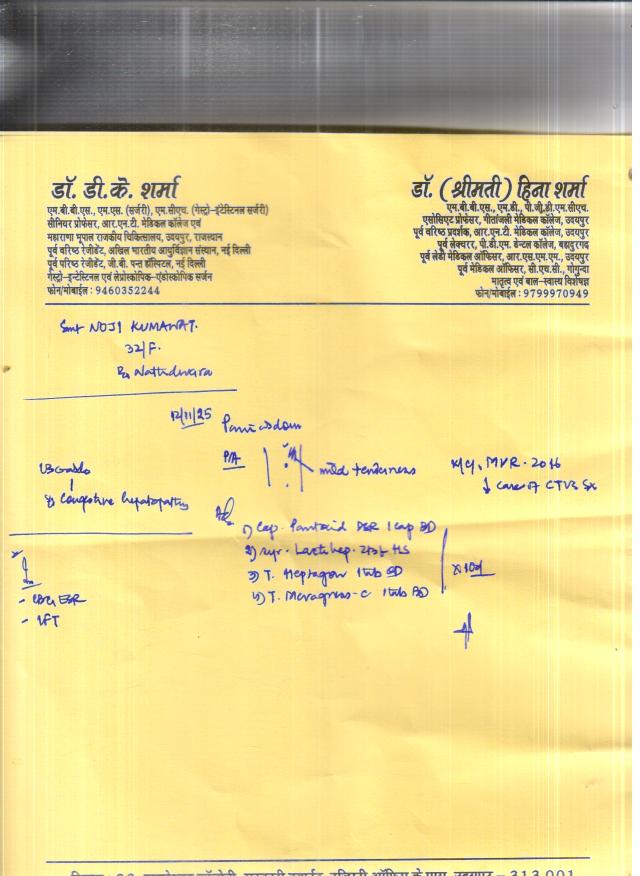 डॉ. डी.के. शर्मा
एम.बी.बी.एस., एम.एस. (सर्जरी), एम.सीएच. (गेस्ट्रो-इंटेस्टिनल सर्जरी)
सीनियर प्रोफेसर, आर.एन.टी. मेडिकल कॉलेज एवं
महाराणा भूपाल राजकीय चिकित्सालय, उदयपुर, राजस्थान
पूर्व वरिष्ठ रेजीडेंट, अखिल भारतीय आयुर्विज्ञान संस्थान, नई दिल्ली
पूर्व वरिष्ठ रेजीडेंट, जी.बी. पन्त हॉस्पिटल, नई दिल्ली
गेस्ट्रो-इन्टेस्टिनल एवं लेप्रोस्कोपिक-एंडोस्कोपिक सर्जन
फोन/मोबाईल : 9460352244
डॉ. (श्रीमती) हिना शर्मा
एम.बी.बी.एस., एम.डी., पी.जी.डी.एम.सीएच.
एसोसिएट प्रोफेसर, गीतांजली मेडिकल कॉलेज, उदयपुर
पूर्व वरिष्ठ प्रदर्शक, आर.एन.टी. मेडिकल कॉलेज, उदयपुर
पूर्व लेक्चरर, पी.डी.एम. डेन्टल कॉलेज, बहादुरगढ़
पूर्व लेडी मेडिकल ऑफिसर, आर.एस.एम.एम., उदयपुर
पूर्व मेडिकल ऑफिसर, सी.एच.सी., गोगुन्दा
मातृत्व एवं बाल-स्वास्थ्य विशेषज्ञ
फोन/मोबाईल : 9799970949
Smt NOJI KUMAWAT.
32/F.
Nathdwara
12/11/25
Pain
P/A
mild tenderness
MVR - 2016
case of CTVS Sx
Congestive hepatopathy
1) Cap. Pantocid DSR 1 cap BD
2) Syr. HS
3) T. Heptagon 1 tab BD
4) T. 1 tab BD
x 10d
- ESR
- LFT
313 001